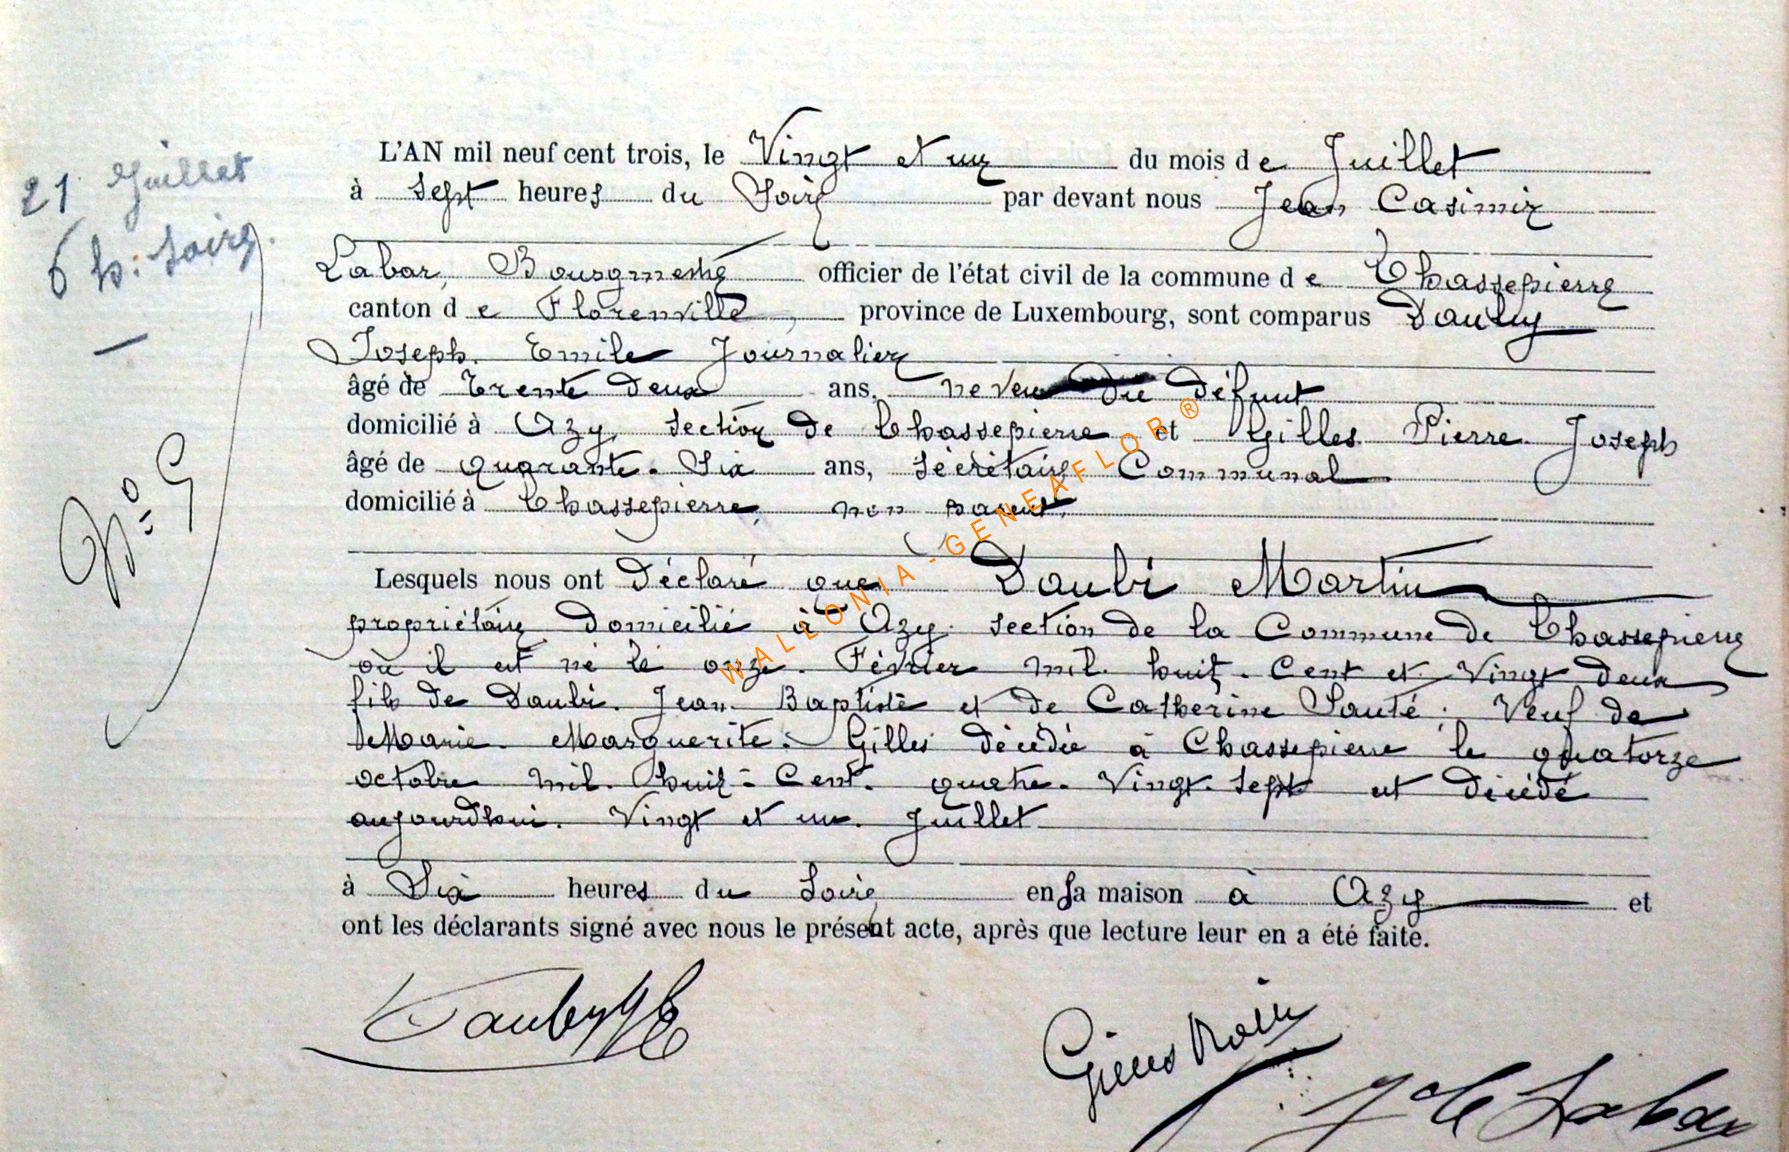 21 Juillet
6 h: Soir.
N° 9
L'AN mil neuf cent trois, le Vingt et un du mois de Juillet
à Sept heures du Soir par devant nous Jean Casimir
Labar, Bourgmestre officier de l'état civil de la commune de Chassepierre
canton de Florenville, province de Luxembourg, sont comparus Dauby
Joseph Emile Journalier
âgé de trente deux ans, neveu du défunt
domicilié à Azy, section de Chassepierre et Gilles Pierre Joseph
âgé de quarante-Six ans, Secrétaire Communal
domicilié à Chassepierre, non parent,
Lesquels nous ont déclaré que Daubi Martin
propriétaire domicilié à Azy section de la Commune de Chassepierre
où il est né le onze Février mil huit Cent et Vingt deux
fils de Daubi Jean Baptiste et de Catherine Santé; Veuf de
Marie Marguerite Gilles décédée à Chassepierre le quatorze
octobre mil huit-Cent quatre-Vingt-Sept est décédé
aujourdhui Vingt et un Juillet
à Six heures du Soir en sa maison à Azy et
ont les déclarants signé avec nous le présent acte, après que lecture leur en a été faite.
Dauby JE
Gilles
J Cr Labar
WALLONIA-GENEAFLOR®